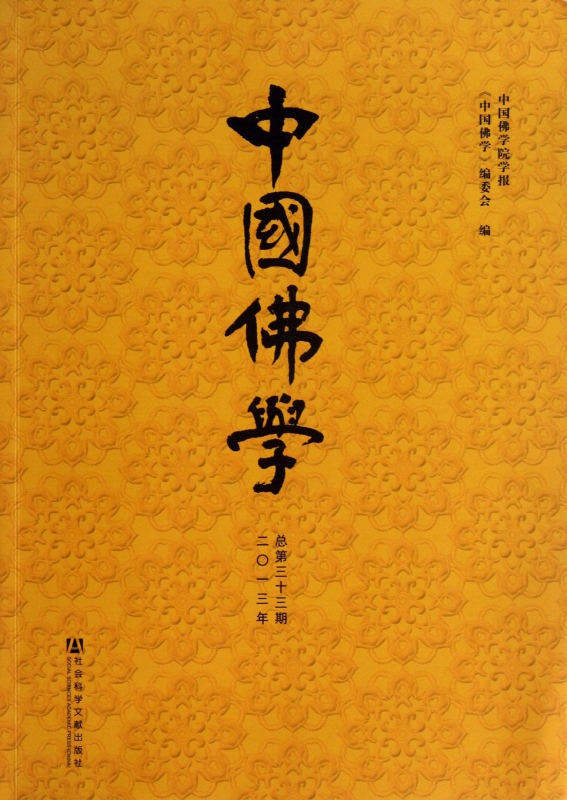 中国佛学院学报
《中国佛学》编委会 编
中國佛學
总第三十三期
二〇一三年
社会科学文献出版社
SOCIAL SCIENCES ACADEMIC PRESS(CHINA)